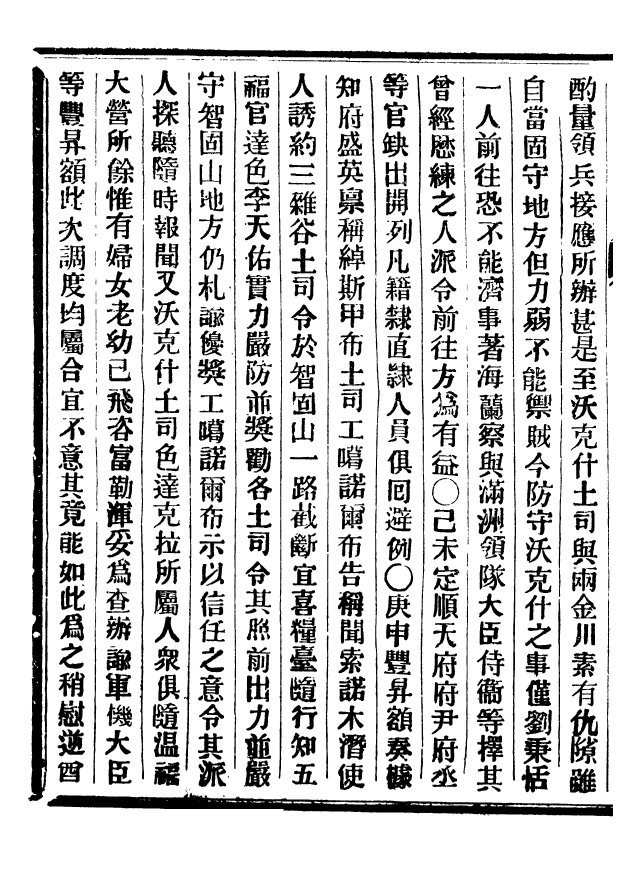 酌量領兵接應所辦甚是至沃克什土司與兩金川素有仇隙雖
自當固守地方但力弱不能禦賊今防守沃克什之事僅劉秉恬
一人前往恐不能濟事著海蘭察與滿洲領隊大臣侍衞等擇其
曾經歷練之人派令前往方爲有益○己未定順天府府尹府丞
等官缺出開列凡籍隸直隸人員俱囘避例○庚申豐昇額奏據
知府盛英稟稱綽斯甲布土司工噶諾爾布告稱聞索諾木潛使
人誘約三雜谷土司令於智固山一路截斷宜喜糧臺隨行知五
福官達色李天佑實力嚴防並獎勸各土司令其照前出力並嚴
守智固山地方仍札諭優獎工噶諾爾布示以信任之意令其派
人探聽隨時報聞又沃克什土司色達克拉所屬人衆俱隨温福
大營所餘惟有婦女老幼已飛咨富勒渾妥爲查辦諭軍機大臣
等豐昇額此次調度均屬合宜不意其竟能如此爲之稍慰逆酋